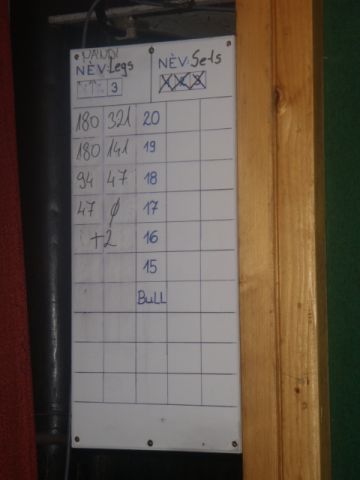 NANDI
NÉV: Legs NÉV: Sets
3
180 321 20
180 141 19
94 47 18
47 0 17
+2 16
15
BULL